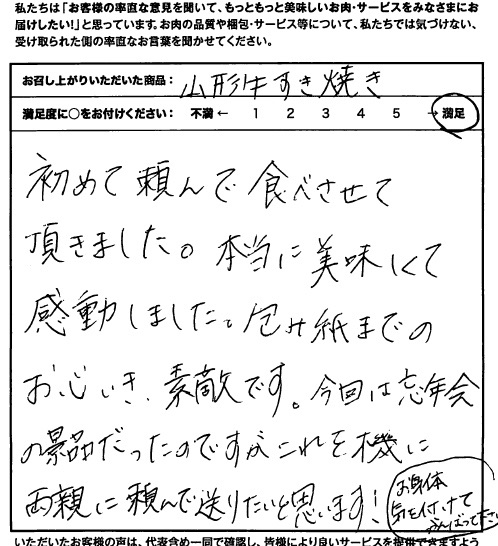 私たちは「お客様の率直な意見を聞いて、もっともっと美味しいお肉・サービスをみなさまにお
届けしたい!」と思っています。お肉の品質や梱包・サービス等について、私たちでは気づけない、
受け取られた側の率直なお言葉を聞かせてください。
お召し上がりいただいた商品： 山形牛すき焼き
満足度に○をお付けください： 不満 ← 1 2 3 4 5 → 満足
初めて頼んで食べさせて
頂きました。本当に美味しくて
感動しました。包み紙までの
お心いき、素敵です。今回は忘年会
の景品だったのですがこれを機に
両親に頼んで送りたいと思います!
お身体
気を付けて
がんばって下さい
いただいたお客様の声は、代表含め一同で確認し、皆様により良いサービスを提供できますよう